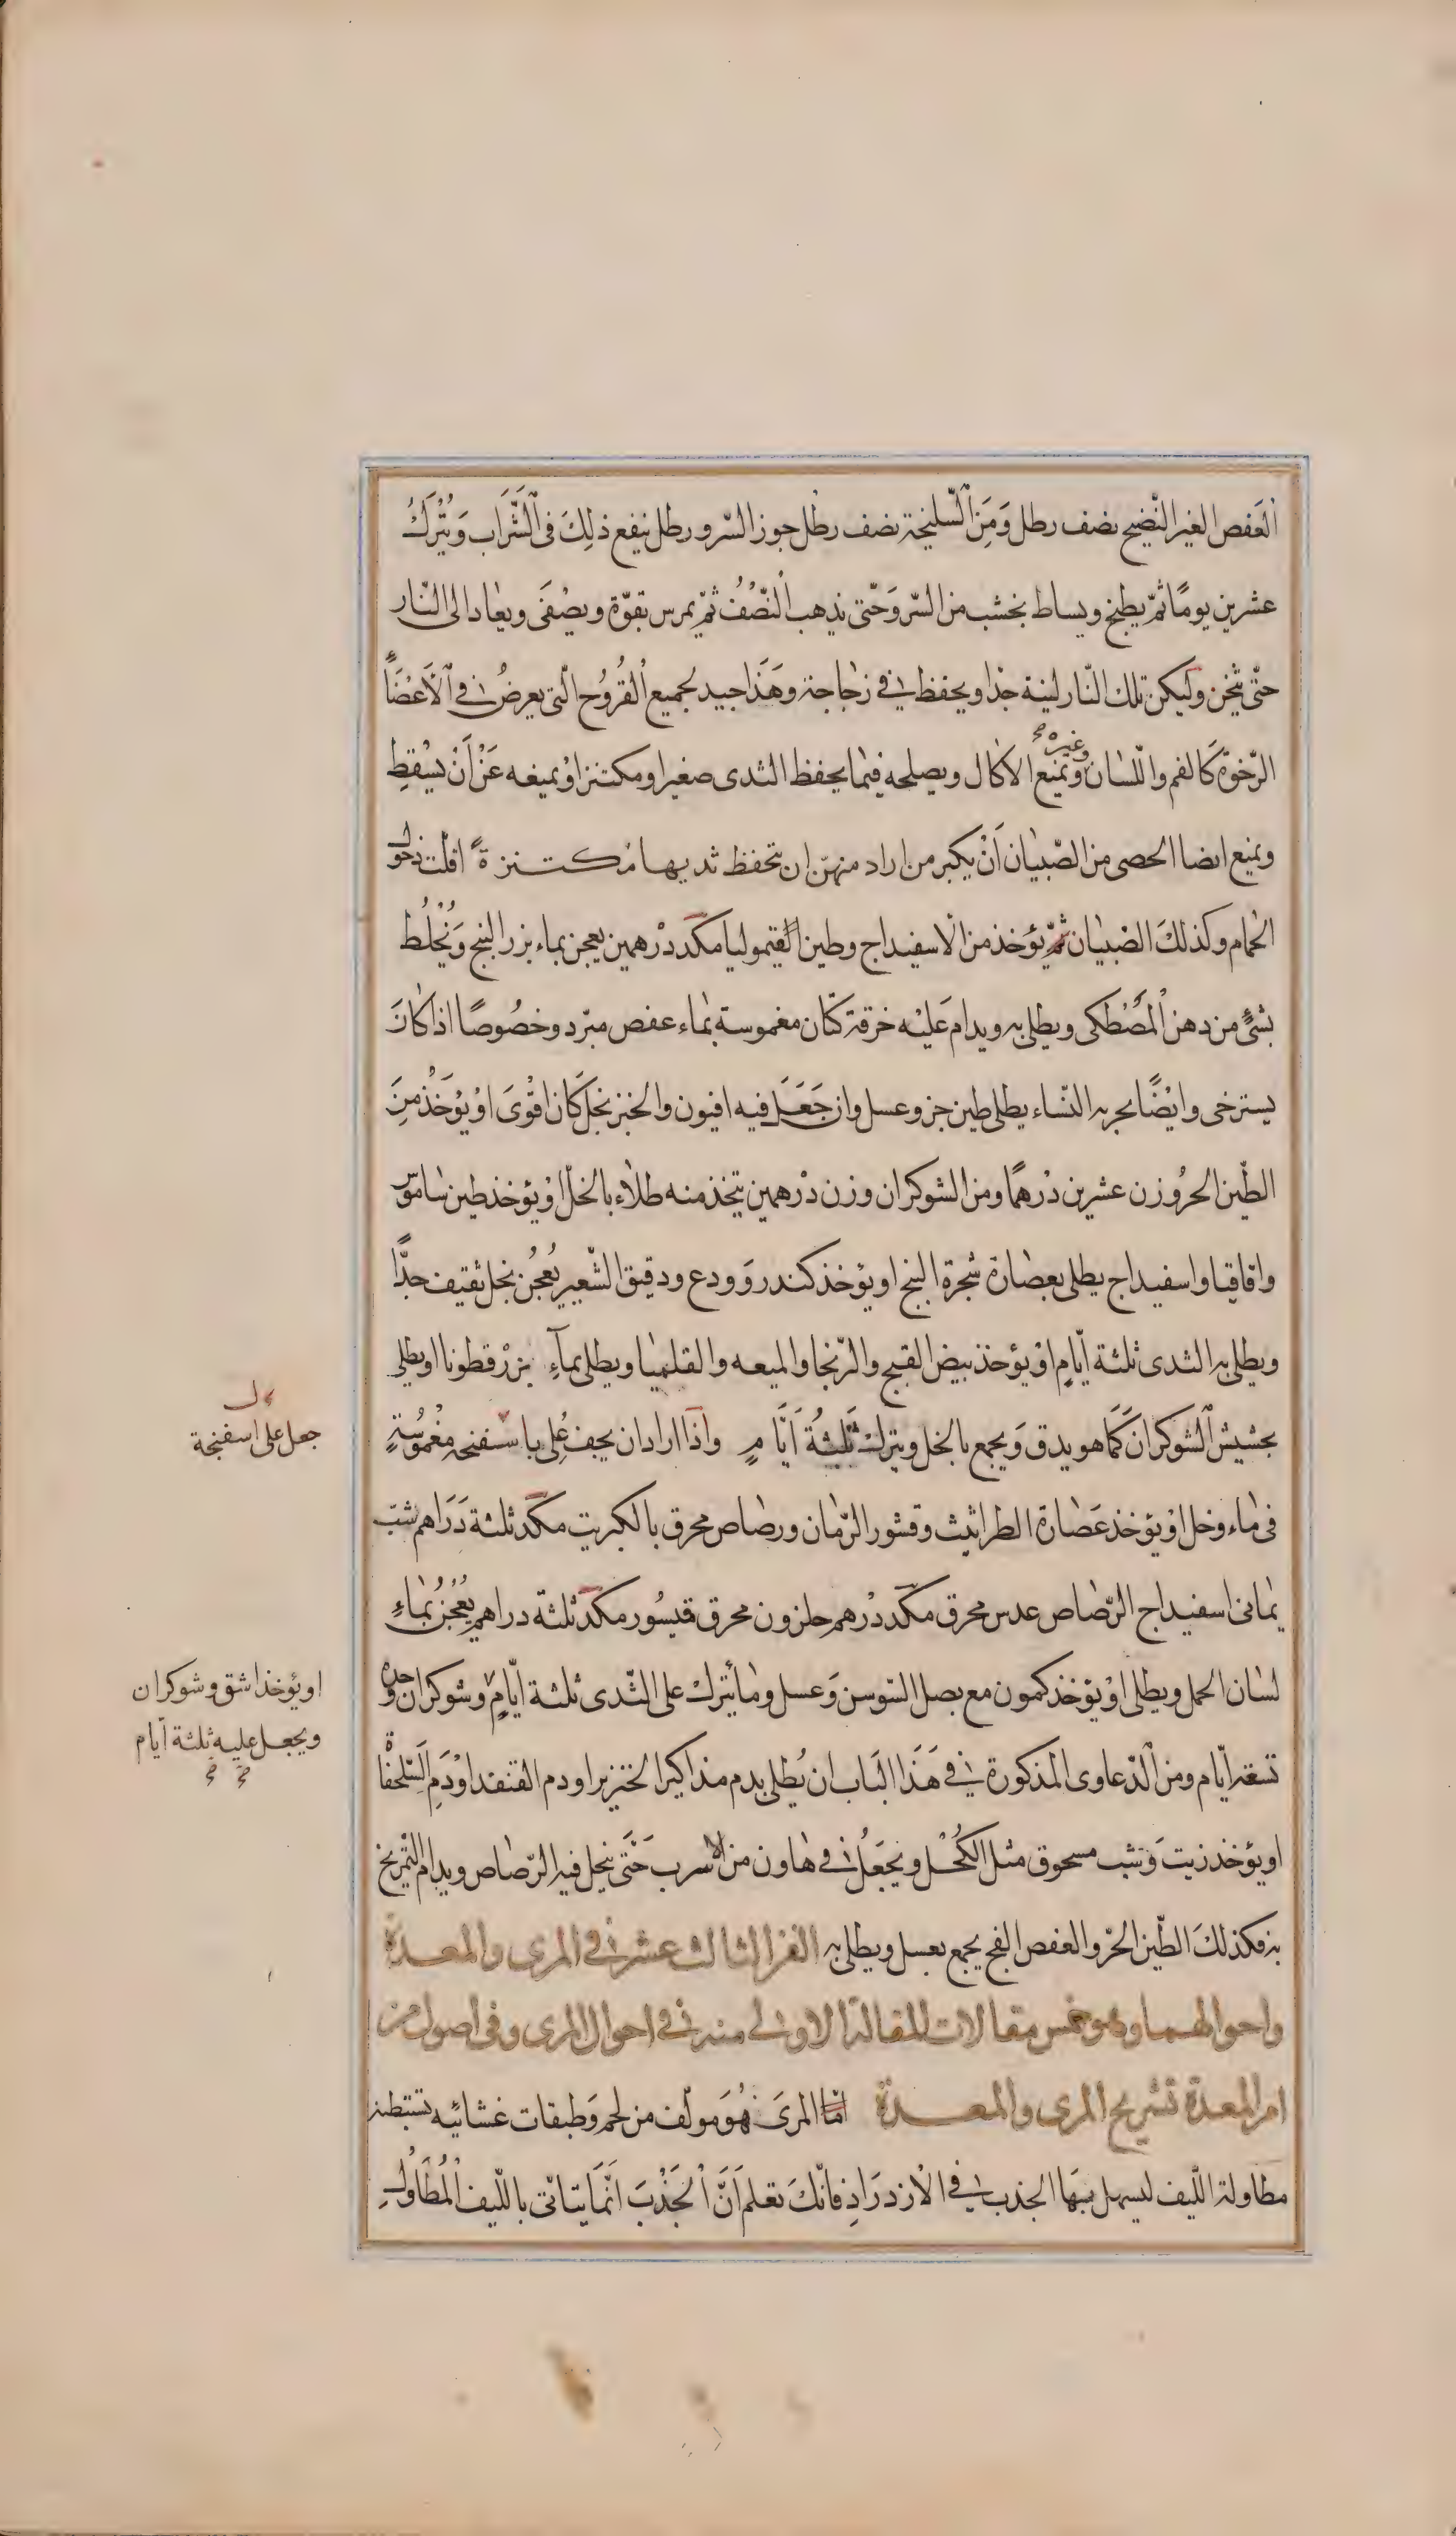 العفص الغير النضيج نصف رطل ومن السليخة نصف رطل جوز السرو رطل ينقع ذلك في الشراب ويترك
عشرين يومًا ثمّ يطبخ ويساط بخشب من السرو حتّى يذهب النّصف ثمّ يمرس بقوّة ويصفى ويعاد الى النّار
حتّى يثخن وليكن تلك النّار لينة جدا ويحفظ في زجاجة وهذا جيد لجميع القروح الّتي يعرض في الاعضاء
الرّخوة كالفم واللّسان وغيره ويمنع الاكال ويصلحه فيما يحفظ الثدى صغيرا ومكتنزا ويمنعه عن أن يسقط
ويمنع ايضا الخصى من الصّبيان أن يكبر من اراد منهنّ ان تحفظ ثديها مكتنزة اقلّت دخول
الحمام وكذلك الصّبيان ثمّ يؤخذ من الاسفيداج وطين القيموليا مكد درهمين يعجن بماء بزر البنج ويخلط
بشئ من دهن المصطكى ويطلى به ويدام عليه خرقة كتّان مغموسة بماء عفص مبرّد وخصوصًا اذا كان
يسترخى وايضًا يجربه النّساء يطلى طين جز وعسل وان جعل فيه افيون والخبز بخل كان اقوى او يؤخذ من
الطّين الحر وزن عشرين درهمًا ومن الشوكران وزن درهمين يتخذ منه طلاء بالخلّ او يؤخذ طين ساموس
واقاقيا واسفيداج يطلى بعصارة شجرة البنج او يؤخذ كندر وودع ودقيق الشّعير يعجن بخل ثقيف جدًّا
ويطلى به الثدى ثلثة أيّام او يؤخذ بيض القبج والزنجا والميعه والقلميا ويطلى بمآء بزرقطونا او يطلى
بحشيش الشوكران كما هو يدق ويجمع بالخل ويترك ثلثة أيّام واذا اراد ان يجف على باسفنجه مغموسة
جعل على اسفنجة
في ماء وخل او يؤخذ عصارة الطراثيث وقشور الرّمان ورصاص محرق بالكبريت مكد ثلثة دراهم شب
يمانى اسفيداج الرّصاص عدس محرق مكد درهم حلزون محرق قيسور مكد ثلثة دراهم يعجن بماء
لسان الحمل ويطلى او يؤخذ كمون مع بصل السّوسن وعسل وما يترك على الثّدى ثلثة أيّام وشوكران وحده
او يؤخذ اشق وشوكران
ويجعل عليه ثلثة أيام
تسعة أيّام ومن الدّعاوى المذكورة في هذا الباب ان يطلى بدم مذاكير الخنزير او دم القنفد او دم السّلحفا
او يؤخذ زيت وشب مسحوق مثل الكحل ويجعل في هاون من الاسرب حتّى ينحل فيه الرّصاص ويدام التّمريخ
به فكذلك الطّين الحرّ والعفص الفج يجمع بعسل ويطلى به الفن الثالث عشر في المرى والمعدة
واحوالهما وهو خمس مقالات المقالة الاولى منه في احوال المرى وفى اصول من
امر المعدة تشريح المرى والمعدة امّا المرى فهو مولف من لحم وطبقات غشائيه تستبطنه
مطاولة اللّيف ليسهل بها الجذب في الازدراد فانّك تعلم أنّ الجذب انّما يتأتى باللّيف المطاول